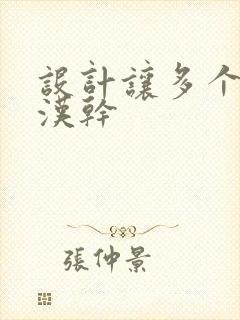 設計讓多个
漢幹
張仲景